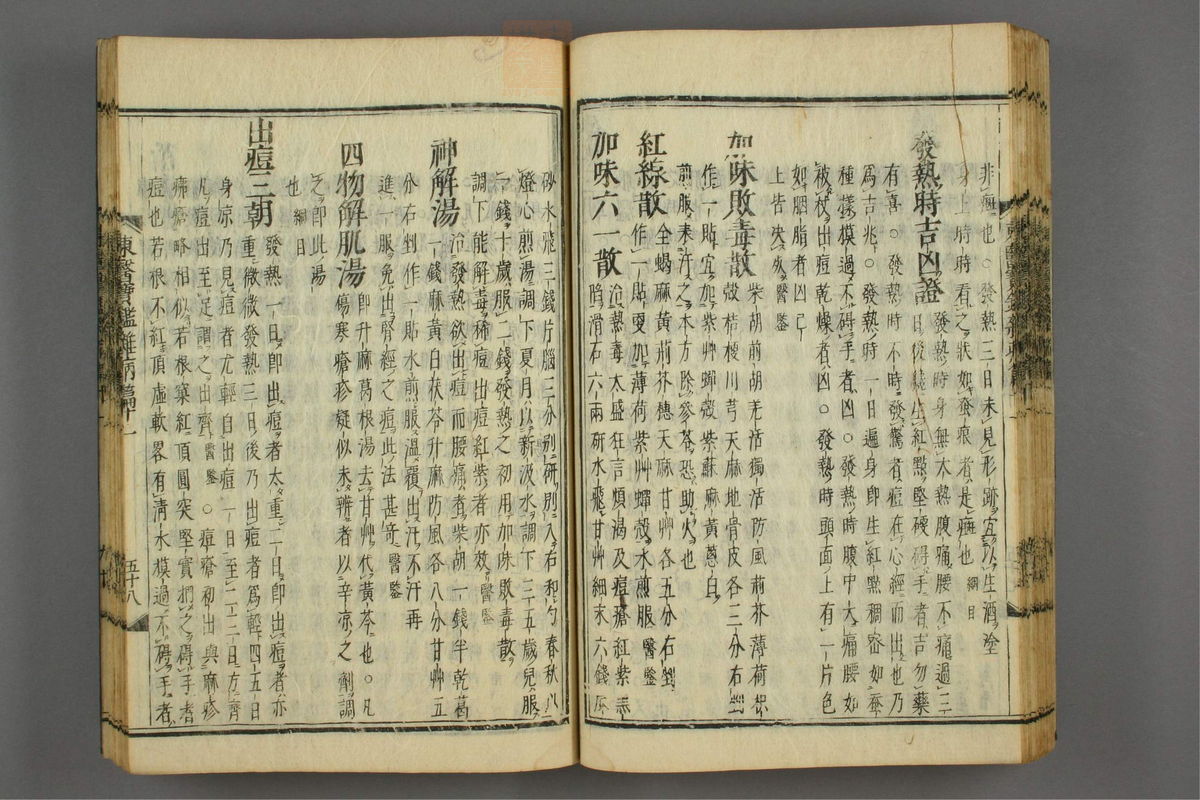 非癍也○發熱三日未見形跡宜以生酒塗
身上時時看之狀如蚤痕者是癍也綱目
發熱時吉凶證 發熱時身無大熱腹痛腰不痛過三
日後纔生紅點堅硬碍手者吉勿藥
有喜○發熱時不時發驚者痘在心經而出也乃
爲吉兆○發熱時一日遍身卽生紅點稠密如蚕
種樣模過不碍手者凶○發熱時腹中大痛腰如
被杖出痘乾燥者凶○發熱時頭面上有一片色
如胭脂者凶已
上皆決死醫鑒
加味敗毒散 柴胡前胡羌活獨活防風荊芥薄荷枳
殼桔梗川芎天麻地骨皮各三分右剉
作一貼宜加紫艸蟬殼紫蘇麻黃葱白
煎服表汗之本方除參苓恐助火也
紅綿散 全蝎麻黃荊芥穗天麻甘艸各五分右剉
作一貼更加薄荷紫艸蟬殼水煎服醫鑒
加味六一散 治熱毒太盛狂言煩渴及痘瘡紅紫
滑石六兩研水飛甘艸細末六錢辰
砂水飛三錢片腦三分別研別入右和勻春秋以
燈心煎湯調下夏月以新汲水調下三五歲兒服
一錢十歲服二錢發熱之初用加味敗毒散
調下能解毒稀痘出痘紅紫者亦效醫鑒
神解湯 治發熱欲出痘而腰痛者柴胡一錢半乾葛
一錢麻黃白茯苓升麻防風各八分甘艸五
分右剉作一貼水煎服溫覆出汗不汗再
進一服免出腎經之痘此法甚奇醫鑒
四物解肌湯 卽升麻葛根湯去甘艸代黃芩也○凡
傷寒瘡疹疑似未辨者以辛凉之劑調
之卽此湯
也綱目
出痘三朝 發熱一日卽出痘者太重二日卽出痘者亦
重微微發熱三日後乃出痘者爲輕四五日
身凉乃見痘者尤輕自出痘一日至二三日方齊
凡痘出至足謂之出齊醫鑒○痘瘡初出與麻疹
痱瘡略相似若根窠紅頂圓突堅實捫之碍手者
痘也若根不紅頂虛軟畧有淸水摸過不碍手者
東醫寶鑑雜病篇十一
五十八